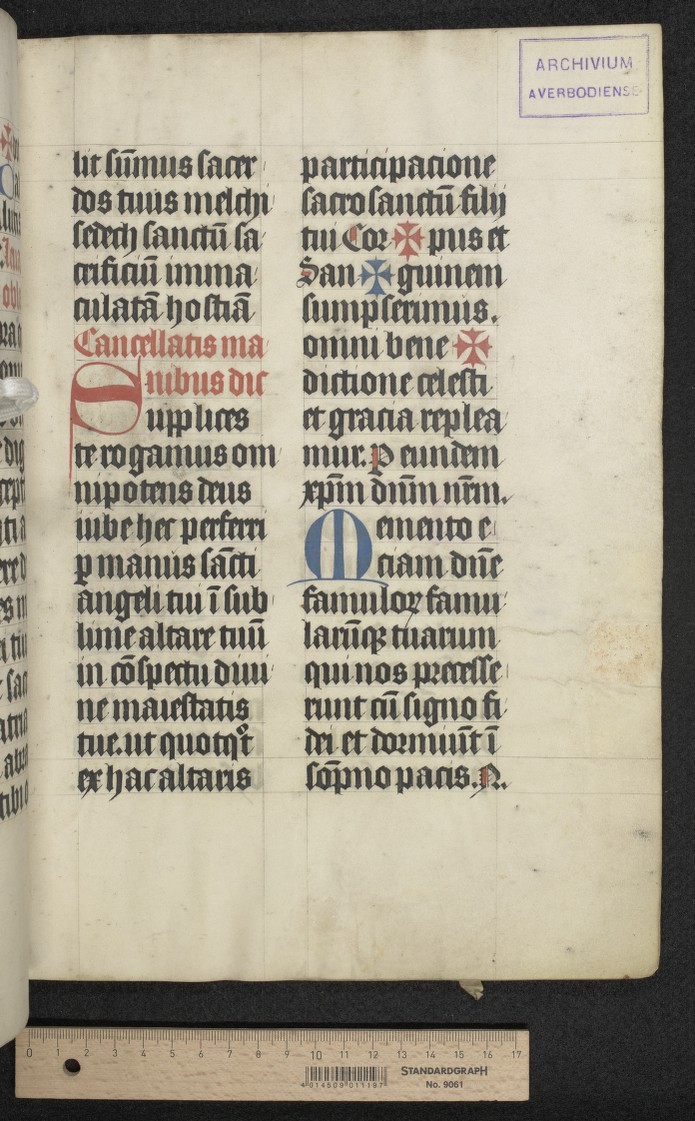 ARCHIVIUM
AVERBODIENSE
lit sūmus sacer
dos tuus melchi
sedech sanctū sa
crificiū imma
culatā hostiā
Cancellatis ma
nibus dic
Supplices
te rogamus om
nipotens deus
iube hec perferri
ꝑ manus sācti
angeli tui ī sub
lime altare tuū
in cōspectu diui
ne maiestatis
tue. ut quotqͦt
ex hac altaris
participacione
sacrosanctū filij
tui Cor ✠ pus et
San ✠ guinem
sumpserimus.
omni bene ✠
dictione celesti
et gracia replea
mur. P eundem
xp̄m dn̄m nr̄m.
Memento e
ciam dn̄e
famuloꝝ famu
larūqꝫ tuarum
qui nos precesse
runt cū signo fi
dei et dormiūt ī
sōpno pacis. N.
0 1 2 3 4 5 6 7 8 9 10 11 12 13 14 15 16 17
STANDARDGRAPH
No. 9061
4 014509 011197